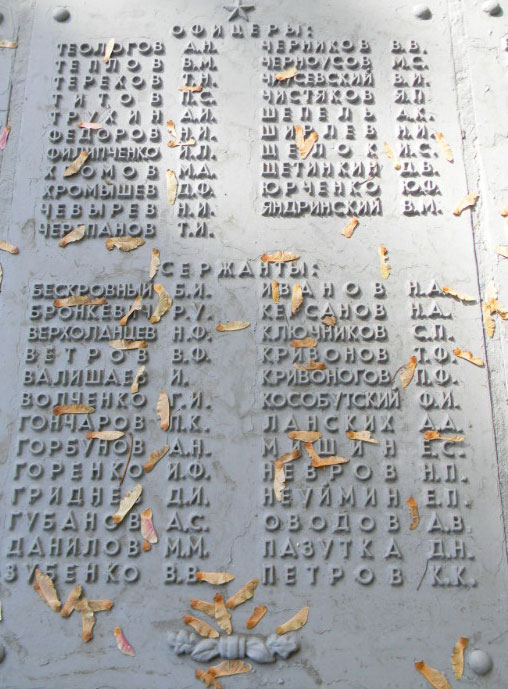 ОФИЦЕРЫ:
ТЕОЛОГОВ А.Н.
ТЕПЛОВ В.М.
ТЕРЕХОВ Т.Н.
ТИТОВ П.С.
ТРУХИН А.И.
ФЕДОРОВ Н.И.
ФИЛИПЧЕНКО И.Л.
ХРОМОВ М.А.
ХРОМЫШЕВ Д.Ф.
ЧЕВЫРЕВ Н.И.
ЧЕРЕПАНОВ Т.И.
ЧЕРНИКОВ В.В.
ЧЕРНОУСОВ М.С.
ЧИЖЕВСКИЙ В.И.
ЧИСТЯКОВ Я.П.
ШЕПЕЛЬ А.К.
Н.И.
И.С.
ЩЕТИНКИН Д.В.
ЮРЧЕНКО Ю.Ф.
ЯНДРИНСКИЙ В.М.
СЕРЖАНТЫ:
БЕСКРОВНЫЙ Б.И.
БРОНКЕВИЧ Р.У.
ВЕРХОЛАНЦЕВ Н.Ф.
ВЕТРОВ В.Ф.
ВАЛИШАЕВ И.
ВОЛЧЕНКО Г.И.
ГОНЧАРОВ П.К.
ГОРБУНОВ А.Н.
ГОРЕНКО И.Ф.
ГРИДНЕВ Д.И.
ГУБАНОВ А.С.
ДАНИЛОВ М.М.
ЗУБЕНКО В.В.
ИВАНОВ Н.А.
КЕКСАНОВ Н.А.
КЛЮЧНИКОВ С.П.
КРИВОНОВ Т.Ф.
КРИВОНОГОВ П.Ф.
КОСОБУТСКИЙ Ф.И.
ЛАНСКИХ А.А.
МИШИН Е.С.
НЕВРОВ Н.П.
НЕУЙМИН Е.П.
ОВОДОВ А.В.
ПАЗУТКА Д.Н.
ПЕТРОВ К.К.